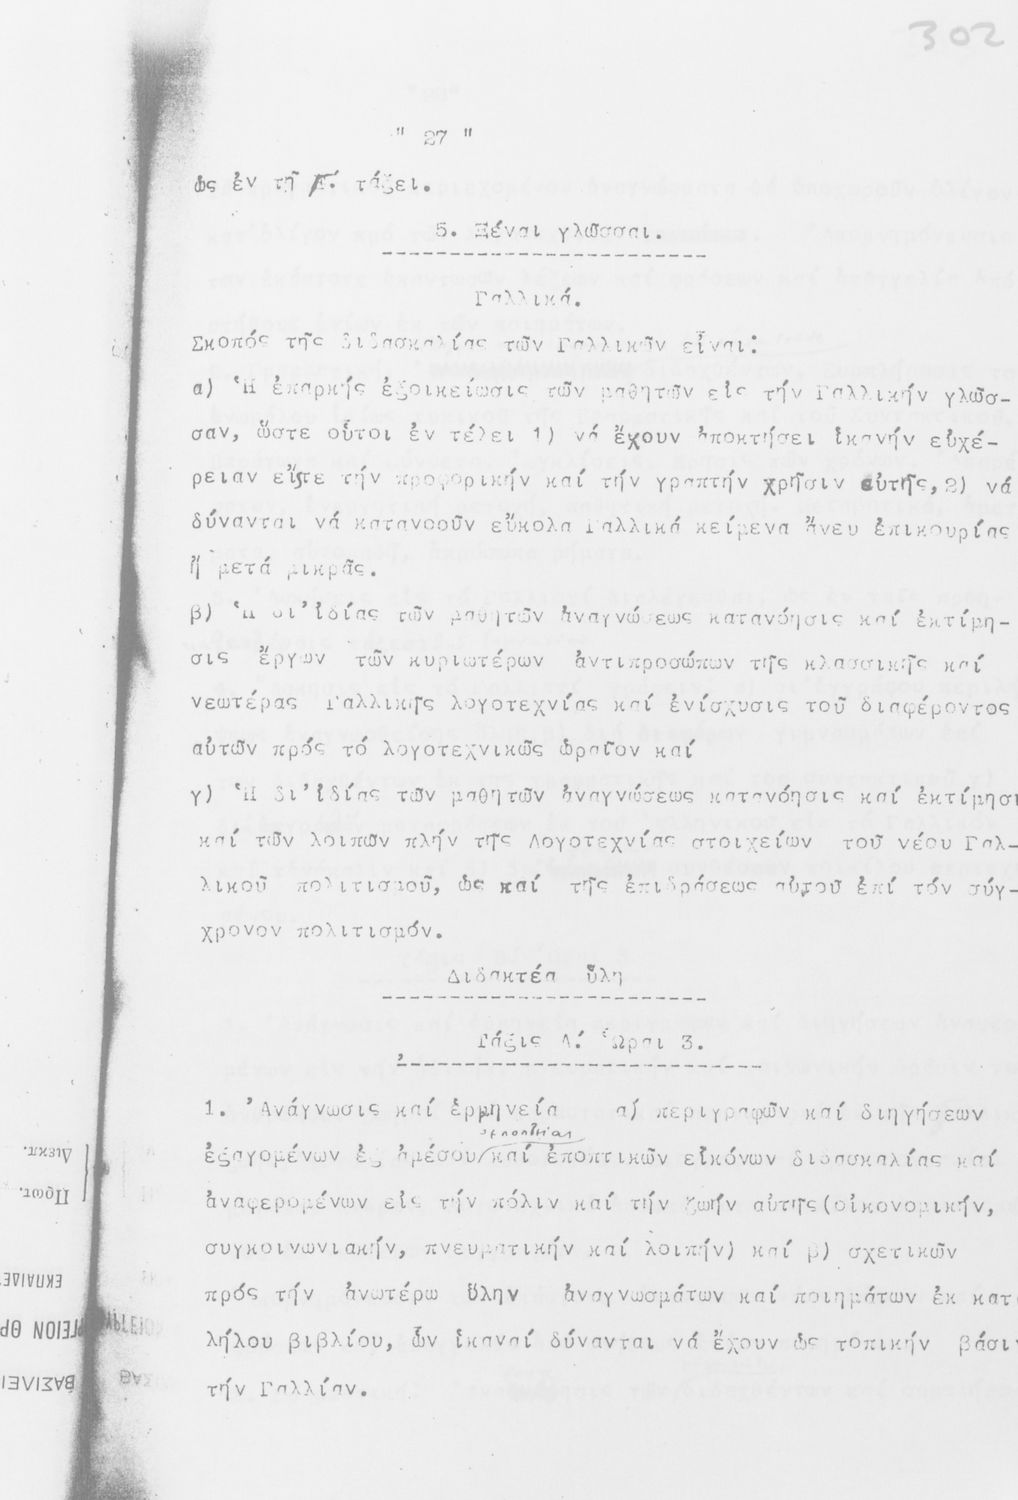 302
" 27 "
ὡς ἐν τῇ Γ΄. τάξει.
5. Ξέναι γλῶσσαι.
Γαλλικά.
Σκοπός τῆς διδασκαλίας τῶν Γαλλικῶν εἶναι:
α) Ἡ ἐπαρκής ἐξοικείωσις τῶν μαθητῶν εἰς τήν Γαλλικήν γλῶσ-
σαν, ὥστε οὗτοι ἐν τέλει 1) νά ἔχουν ἀποκτήσει ἱκανήν εὐχέ-
ρειαν εἴτε τήν προφορικήν καί τήν γραπτήν χρῆσιν αὐτῆς, 2) νά
δύνανται νά κατανοοῦν εὔκολα Γαλλικά κείμενα ἄνευ ἐπικουρίας
ἤ μετά μικρᾶς.
β) Ἡ δι' ἰδίας τῶν μαθητῶν ἀναγνώσεως κατανόησις καί ἐκτίμη-
σις ἔργων τῶν κυριωτέρων ἀντιπροσώπων τῆς κλασσικῆς καί
νεωτέρας Γαλλικῆς λογοτεχνίας καί ἐνίσχυσις τοῦ διαφέροντος
αὐτῶν πρός τό λογοτεχνικῶς ὡραῖον καί
γ) Ἡ δι' ἰδίας τῶν μαθητῶν ἀναγνώσεως κατανόησις καί ἐκτίμησι
καί τῶν λοιπῶν πλήν τῆς Λογοτεχνίας στοιχείων τοῦ νέου Γαλ-
λικοῦ πολιτισμοῦ, ὡς καί τῆς ἐπιδράσεως αὐτοῦ ἐπί τόν σύγ-
χρονον πολιτισμόν.
Διδακτέα ὕλη
Τάξις Δ΄. Ὧραι 3.
1. Ἀνάγνωσις καί ἑρμηνεία α) περιγραφῶν καί διηγήσεων
ἐξαγομένων ἐξ ἀμέσου καί ἐποπτικῶν εἰκόνων διδασκαλίας καί
ἀναφερομένων εἰς τήν πόλιν καί τήν ζωήν αὐτῆς (οἰκονομικήν,
συγκοινωνιακήν, πνευματικήν καί λοιπήν) καί β) σχετικῶν
πρός τήν ἀνωτέρω ὕλην ἀναγνωσμάτων καί ποιημάτων ἐκ κατ
λήλου βιβλίου, ὧν ἱκαναί δύνανται νά ἔχουν ὡς τοπικήν βάσι
τήν Γαλλίαν.
Διεκπ.
Πρωτ.
ΕΚΠΑΙΔΕ
ΓΕΙΟΝ ΘΡ
ΒΑΣΙΛΕΙ